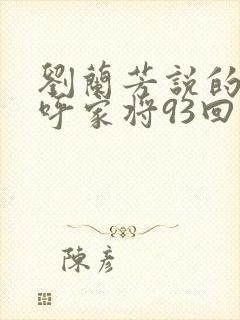 劉蘭芳説的
呼家将93回
陳彦